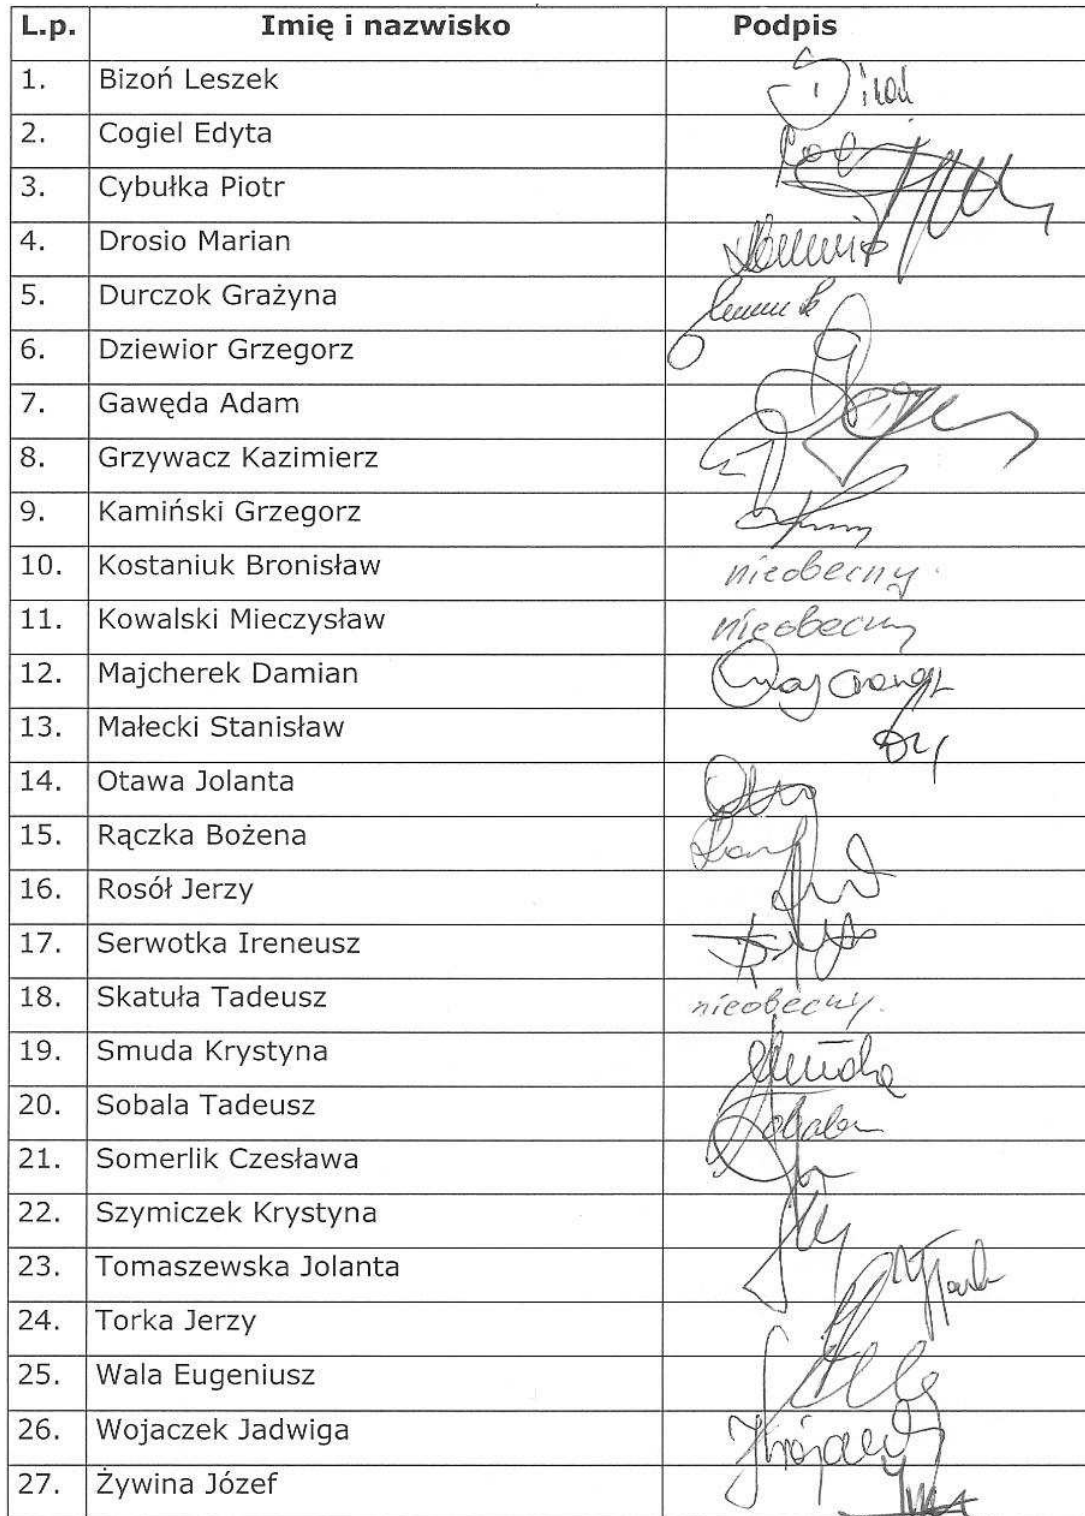 L.p. Imię i nazwisko Podpis
1. Bizoń Leszek
2. Cogiel Edyta
3. Cybułka Piotr
4. Drosio Marian
5. Durczok Grażyna
6. Dziewior Grzegorz
7. Gawęda Adam
8. Grzywacz Kazimierz
9. Kamiński Grzegorz
10. Kostaniuk Bronisław nieobecny.
11. Kowalski Mieczysław nieobecny
12. Majcherek Damian
13. Małecki Stanisław
14. Otawa Jolanta
15. Rączka Bożena
16. Rosół Jerzy
17. Serwotka Ireneusz
18. Skatuła Tadeusz nieobecny.
19. Smuda Krystyna
20. Sobala Tadeusz
21. Somerlik Czesława
22. Szymiczek Krystyna
23. Tomaszewska Jolanta
24. Torka Jerzy
25. Wala Eugeniusz
26. Wojaczek Jadwiga
27. Żywina Józef